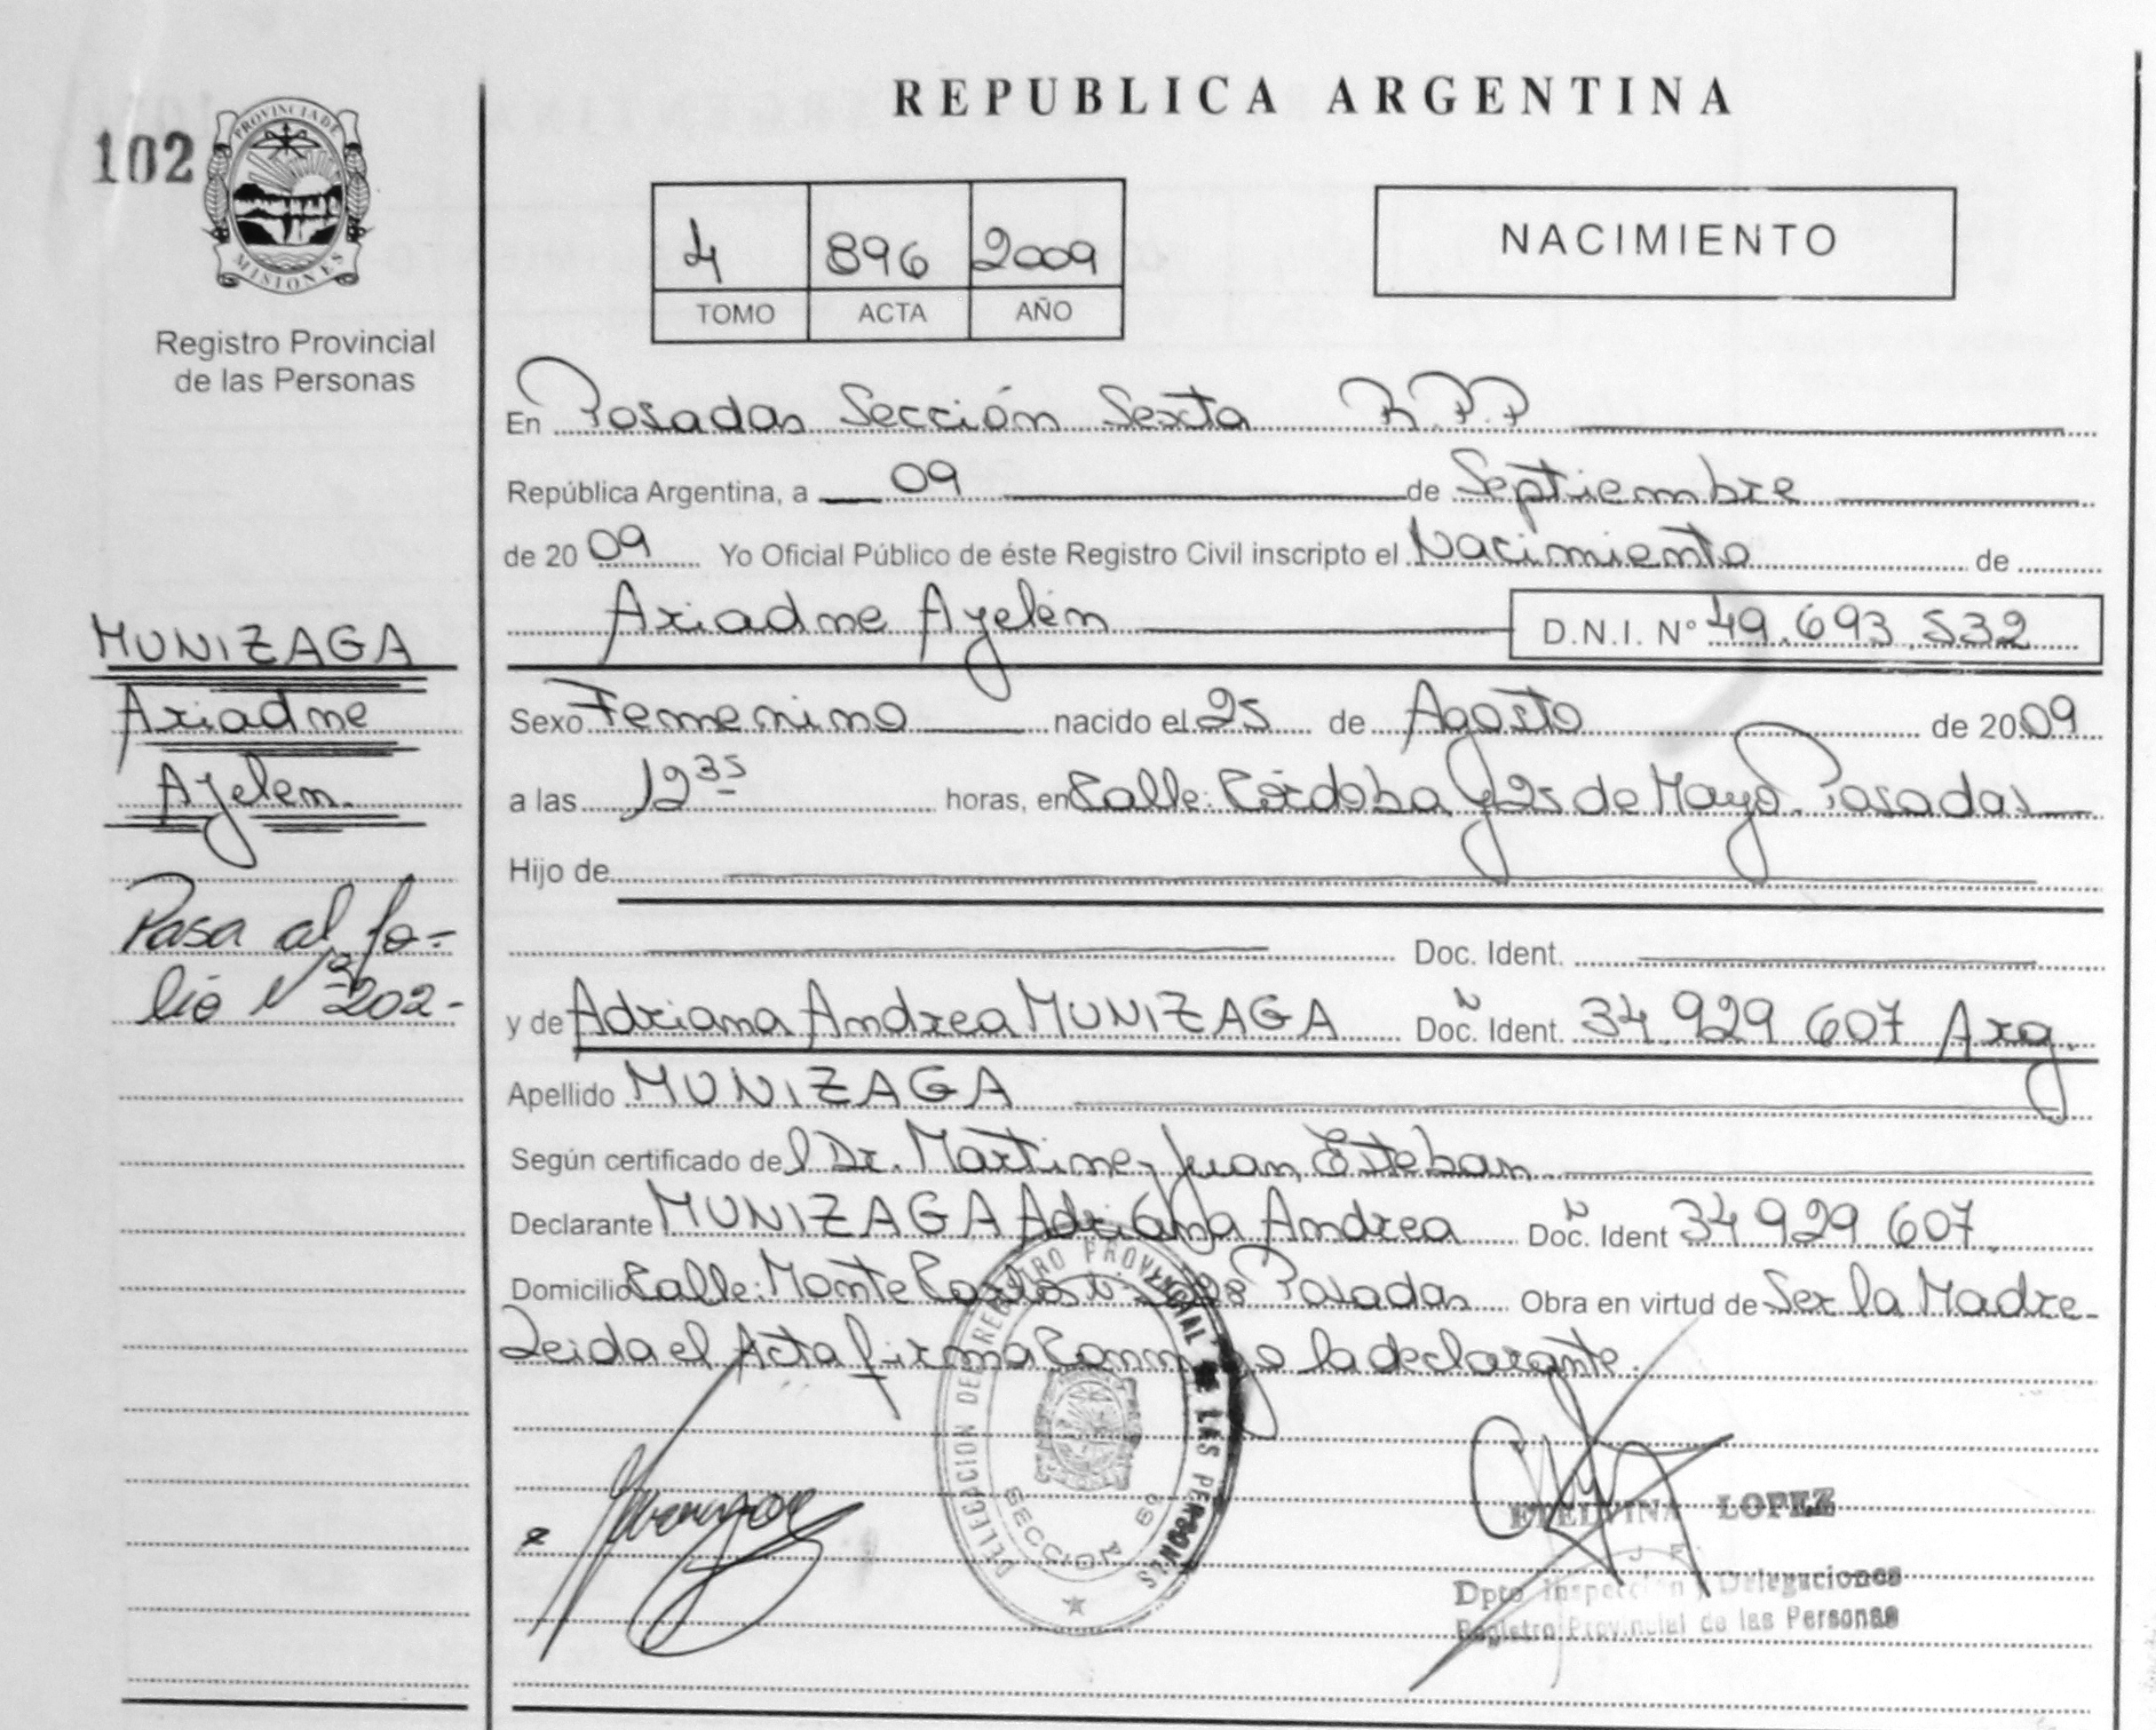 REPUBLICA ARGENTINA
102
PROVINCIA DE
MISIONES
Registro Provincial
de las Personas
4 896 2009
TOMO ACTA AÑO
NACIMIENTO
En Posadas Sección Sexta R.P.P
República Argentina, a 09 de Septiembre
de 2009 Yo Oficial Público de éste Registro Civil inscripto el Nacimiento de
Ariadne Ayelén D.N.I. N° 49.693.532
Sexo Femenino nacido el 25 de Agosto de 2009
a las 12 35 horas, en Calle: Córdoba y 25 de Mayo. Posadas
Hijo de
Doc. Ident.
y de Adriana Andrea MUNIZAGA Doc. Ident. 34.929.607 Arg.
Apellido MUNIZAGA
Según certificado del Dr. Martinez Juan Esteban
Declarante MUNIZAGA Adriana Andrea Doc. Ident 34.929.607
Domicilio Calle: Monte Carlo Posadas Obra en virtud de Ser la Madre.
Leida el Acta firma Conmigo la declarante.
MUNIZAGA
Ariadne
Ayelén.
Pasa al fo-
lio N° 202-
DELEGACION DEL REGISTRO PROVINCIAL DE LAS PERSONAS
SECCION 6º
ETELVINA LOPEZ
Dpto Inspección y Delegaciones
Registro Provincial de las Personas